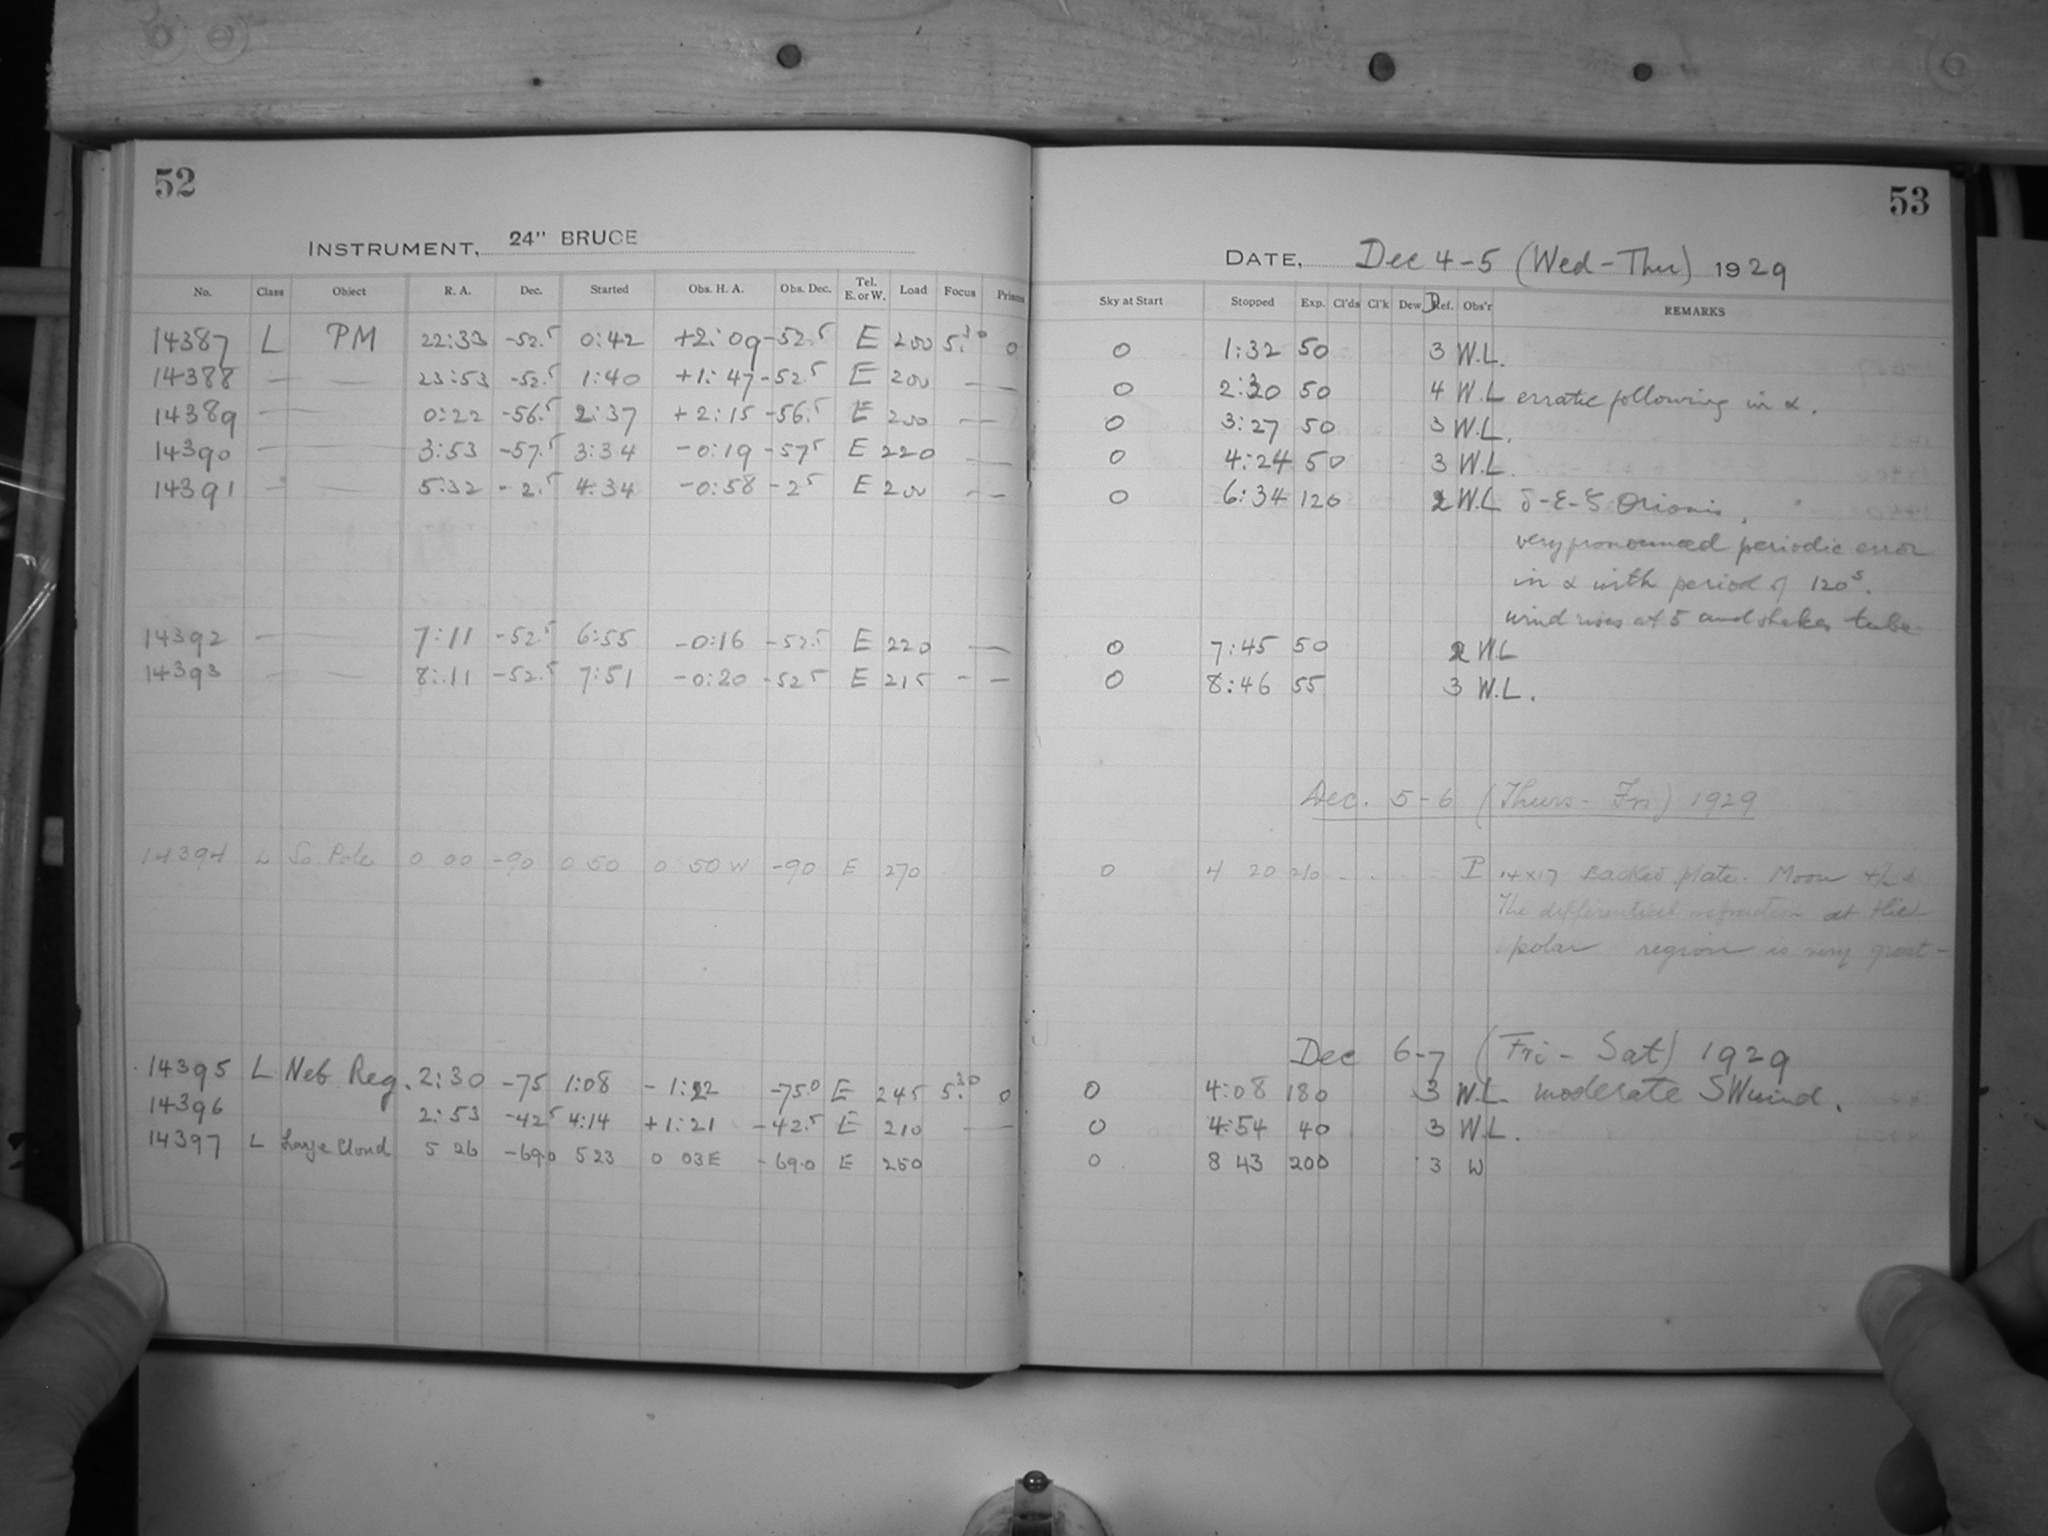 52
INSTRUMENT, 24" BRUCE
No. Class Object R. A. Dec. Started Obs. H. A. Obs. Dec. Tel. E. or W. Load Focus Prisms
14387 L PM 22:33 -52.5 0:42 +2:09 -52.5 E 200 5.30 0
14388 — — 23:53 -52.5 1:40 +1:47 -52.5 E 200 — —
14389 — — 0:22 -56.5 2:37 +2:15 -56.5 E 200 — —
14390 — — 3:53 -57.5 3:34 -0:19 -57.5 E 220 — —
14391 — — 5:32 -2.5 4:34 -0:58 -2.5 E 200 — —
14392 — — 7:11 -52.5 6:55 -0:16 -52.5 E 220 — —
14393 — — 8:11 -52.5 7:51 -0:20 -52.5 E 215 — —
14394 L So. Pole 0 00 -90 0 50 0 50 W -90 E 270
14395 L Neb. Reg. 2:30 -75 1:08 -1:22 -75.0 E 245 5.30 0
14396 2:53 -42.5 4:14 +1:21 -42.5 E 210 —
14397 L Large Cloud 5 26 -69.0 5 23 0 03 E -69.0 E 250
53
DATE, Dec 4-5 (Wed-Thu) 1929
Sky at Start Stopped Exp. Cl'ds Cl'k Dew Def. Obs'r REMARKS
0 1:32 50 3 W.L.
0 2:30 50 4 W.L erratic following in α.
0 3:27 50 3 W.L.
0 4:24 50 3 W.L.
0 6:34 120 2 W.L δ-ε-ζ Orionis.
very pronounced periodic error
in α with period of 120s.
wind rises at 5 and shakes tube
0 7:45 50 2 W.L
0 8:46 55 3 W.L.
Dec. 5-6 (Thurs-Fri) 1929
0 4 20 210 - - P 14x17 Backed plate. Moon
The differential refraction at the
polar region is very great-
Dec 6-7 (Fri-Sat) 1929
0 4:08 180 3 W.L. moderate SW wind.
0 4:54 40 3 W.L.
0 8 43 200 3 W